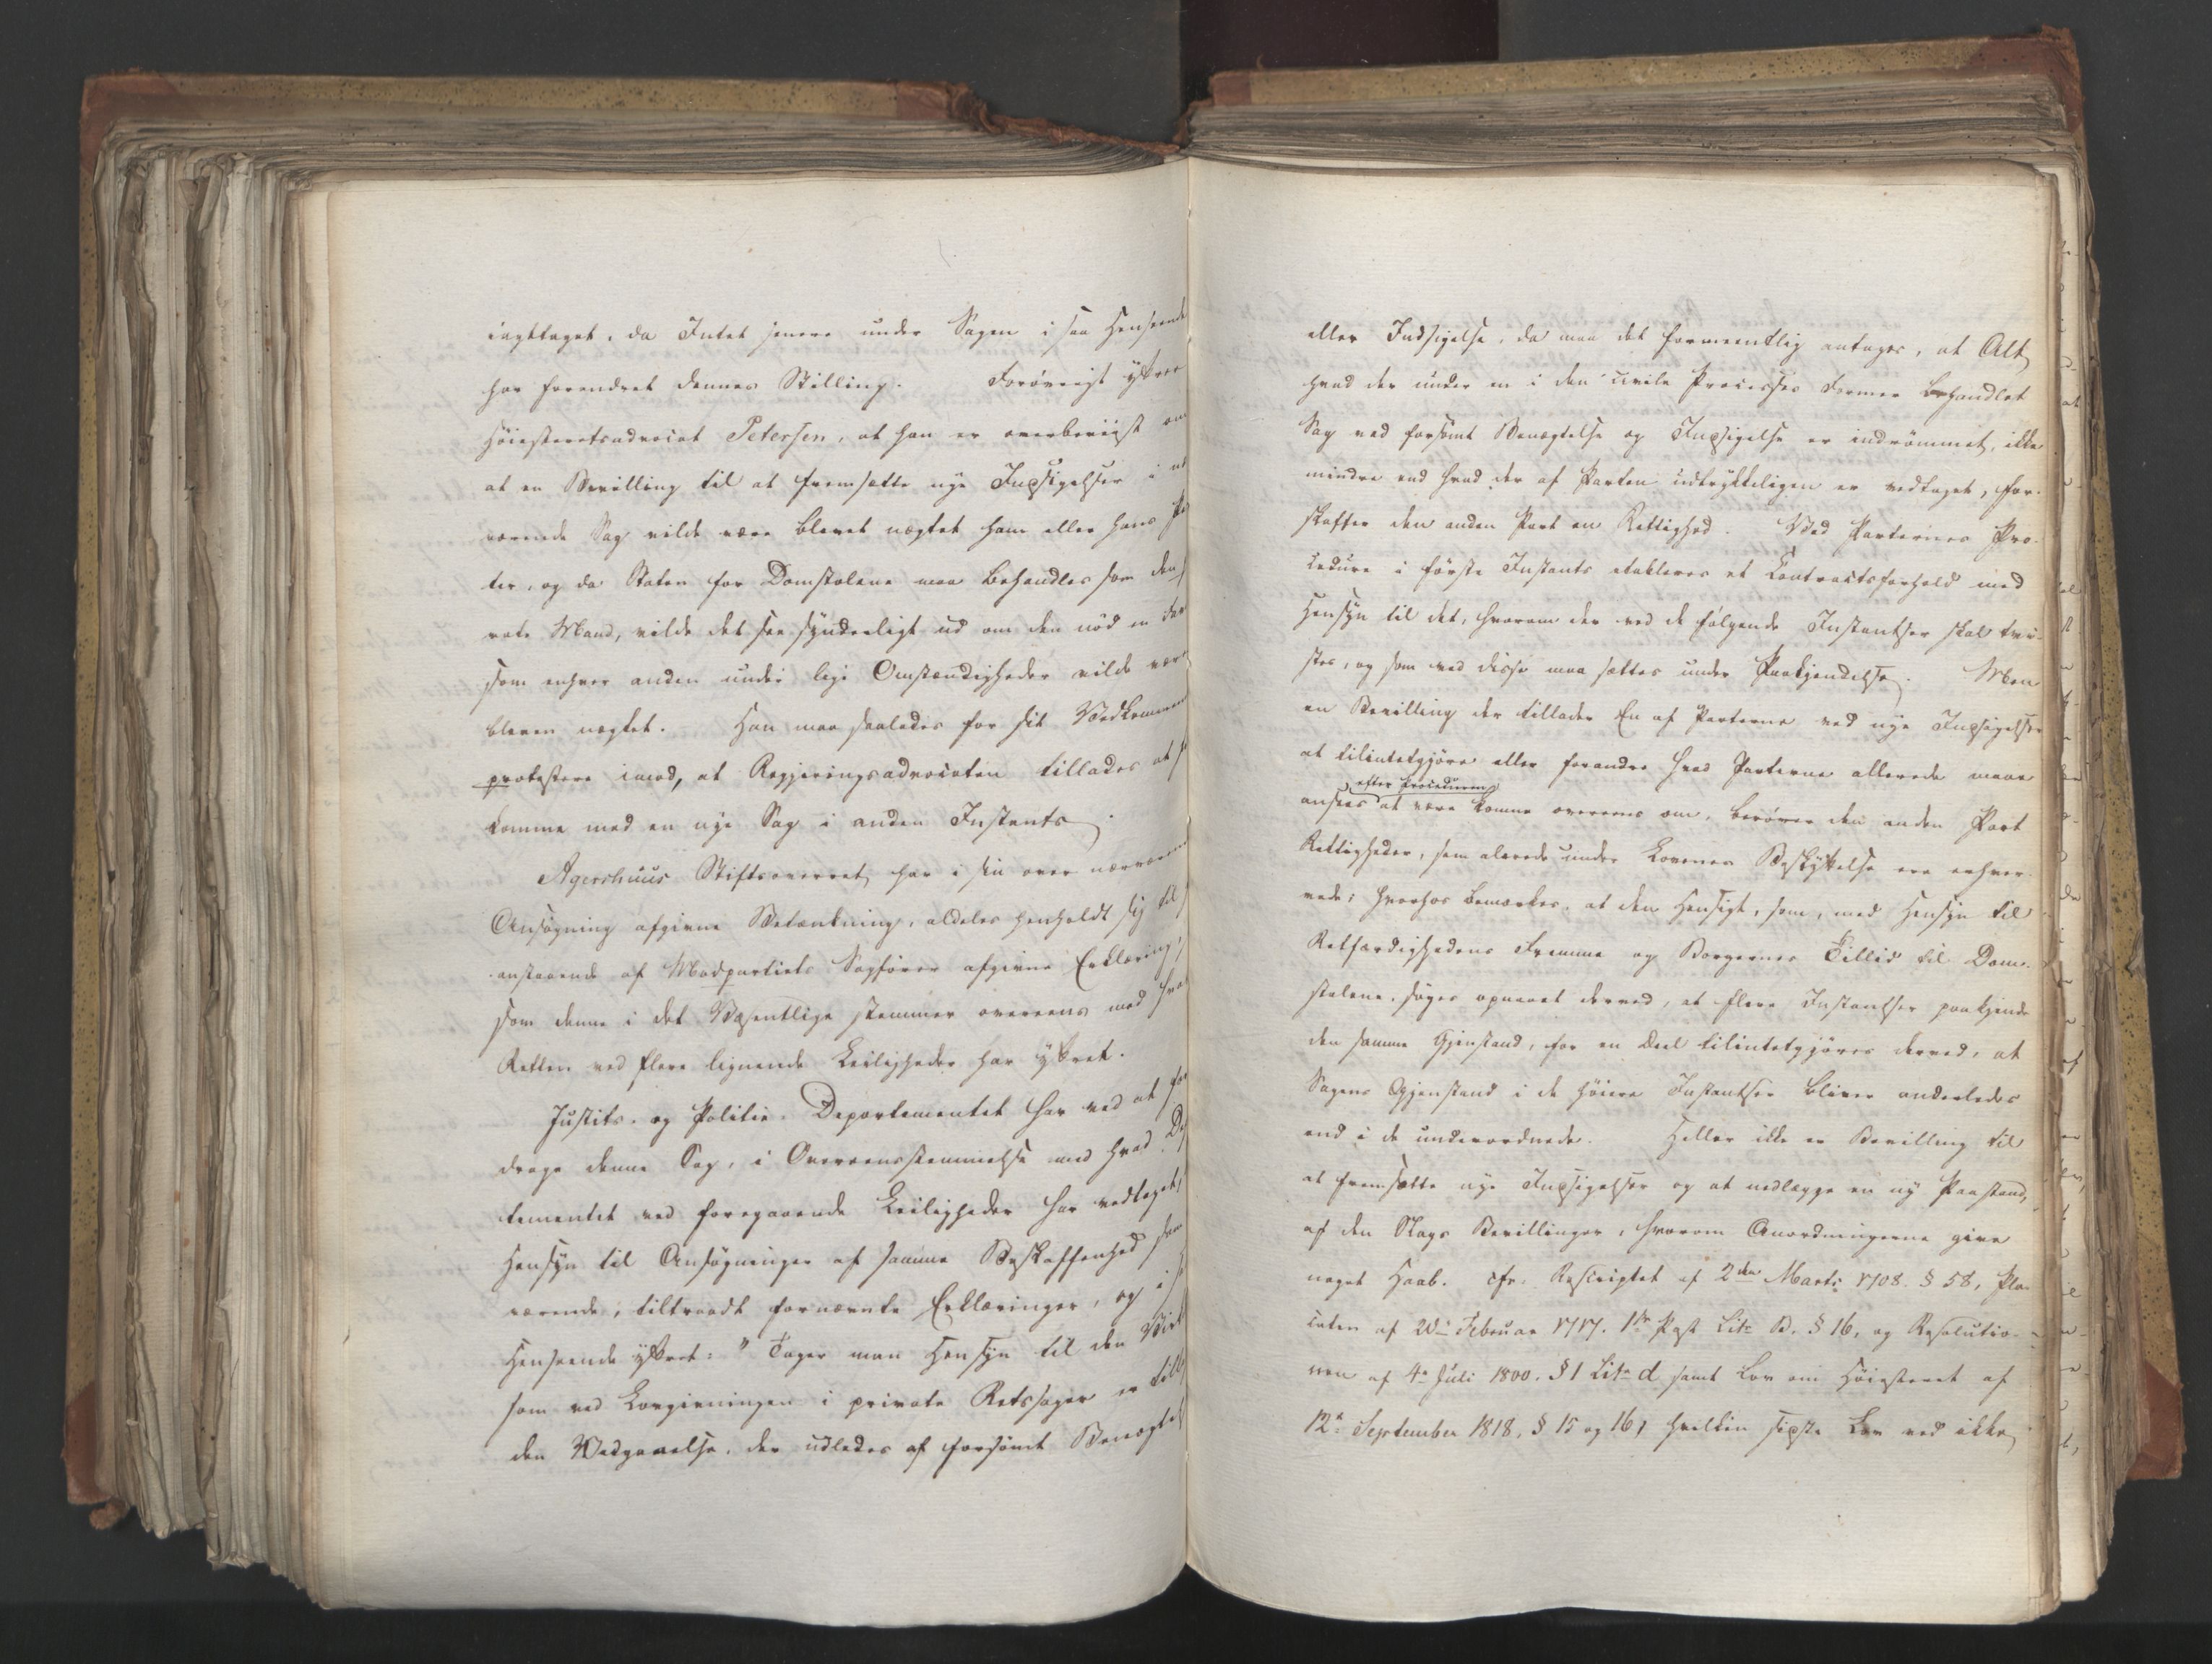 iagttaget, da Intet senere under Sagen i saa Henseende
har forandret dennes Stilling. Forøvrigt yttrer
Høiesteretsadvocat Petersen, at han er overbeviist om
at en Bevilling til at fremsætte nye Indsigelser i
værende Sag vilde være blevet nægtet ham eller hans
ter, og da Staten for Domstolene maa behandles som den
vate Mand, vilde det see synderligt ud om den nød en
som enhver anden under lige Omstændigheder vilde være
bleven nægtet. Han maa saaledes for sit Vedkommende
protestere imod, at Regjeringsadvocaten tillades at
komme med en nye Sag i anden Instants.
Agershuus Stiftsoverret har i sin over nærværende
Ansøgning afgivne Betænkning, aldeles henholdt sig til
anstaaende af Modpartiets Sagfører afgivne Erklæring,
som denne i det Væsentlige stemmer overeens med hvad
Retten ved flere lignende Leiligheder har yttret.
Justits- og Politie-Departementet har ved at fore
drage denne Sag, i Overeensstemmelse med hvad De
tementet ved foregaaende Leiligheder har vedtaget,
Hensyn til Ansøgninger af samme Beskaffenhed som
værende, tiltraadt fornævnte Erklæringer, og i
Henseende yttret: "Tager man Hensyn til den Virk
som ved Lovgivningen i private Retssager er till
den Vedgaaelse, der udledes af forsømt Benægtelse
eller Indsigelse, da maa det formeentlig antages, at Alt
hvad der under en i den civile Processes Former behandlet
Sag ved forsømt Benægtelse og Indsigelse er indrømmet, ikke
mindre end hvad der af Parten udtrykkeligen er vedtaget, for-
skaffer den anden Part en Rettighed. Ved Parternes Pro-
cedure i første Instants etableres et Contractsforhold med
Hensyn til det, hvorom der ved de følgende Instantser skal tvi-
stes, og som ved disse maa sættes under Paakjendelse. Men
en Bevilling der tillader En af Parterne ved nye Indsigelser
at tilintetgjøre eller forandre hvad Parterne allerede maae
efter Proceduren
ansees at være komne overeens om, berøver den anden Part
Rettigheder, som alerede under Lovenes Beskyttelse ere erhver-
vede; hvorhos bemærkes, at den Hensigt, som, med Hensyn til
Retfærdighedens Fremme og Borgernes Tillid til Dom-
stolene, søges opnaaet derved, at flere Instantser paakjende
den samme Gjenstand, for en Deel tilintetgjøres derved, at
Sagens Gjenstand i de høiere Instantser bliver anderledes
end i de underordnede. Heller ikke er Bevilling til
at fremsætte nye Indsigelser og at nedlægge en ny Paastand,
af den Slags Bevillinger, hvorom Anordningerne give
noget Haab. cfr. Rescriptet af 2den Marts 1708 § 58, Pla-
caten af 20de Februar 1717. 1ste Post Lit. B. § 16, og Resolutio-
nen af 4de Juli 1800. § 1 Litr d samt Lov om Høiesteret af
12te September 1818, § 15 og 16, hvilken sidste Lov ved ikke